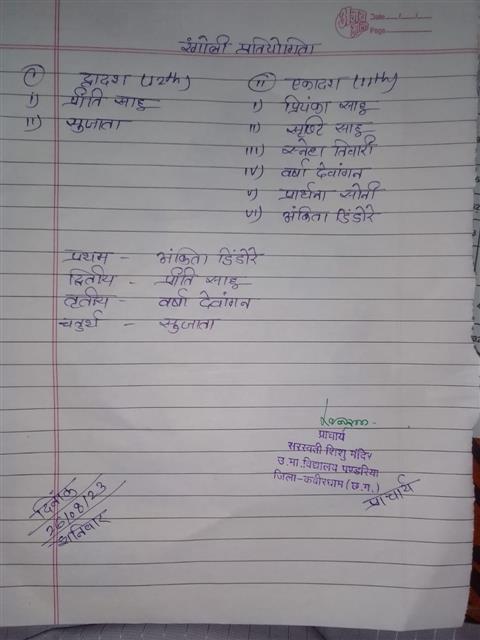 Date
Page
रंगोली प्रतियोगिता
I) द्वादश (12th)
I) प्रीति साहू
II) सुजाता
II) एकादश (11th)
I) प्रियंका साहू
II) सृष्टि साहू
III) स्नेहा तिवारी
IV) वर्षा देवांगन
V) प्रार्थना सोनी
VI) अंकिता डिंडोरे
प्रथम - अंकिता डिंडोरे
द्वितीय - प्रीति साहू
तृतीय - वर्षा देवांगन
चतुर्थ - सुजाता
प्राचार्य
सरस्वती शिशु मंदिर
उ.मा.विद्यालय पण्डरिया
जिला-कबीरधाम (छ.ग.)
प्राचार्य
दिनांक
26/08/23
शनिवार